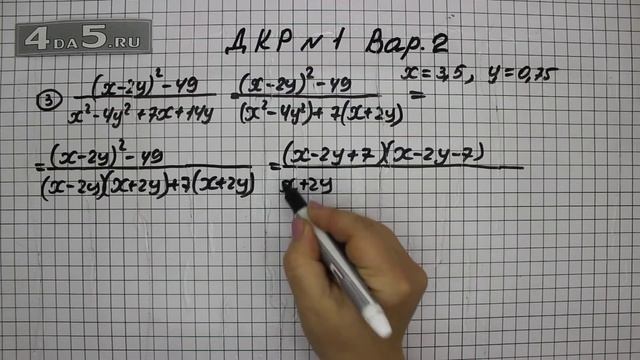 4DA5.RU
ДКР №1 Вар. 2
③ (x-2y)²-49 / x²-4y²+7x+14y (x-2y)²-49 / (x²-4y²)+7(x+2y) = x=3,5, y=0,75
= (x-2y)²-49 / (x-2y)(x+2y)+7(x+2y) = (x-2y+7)(x-2y-7) / x+2y